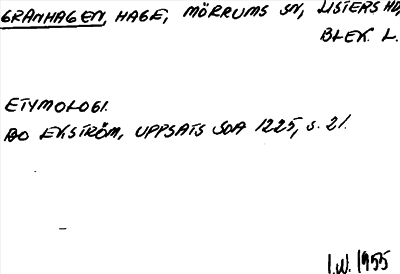 GRANHAGEN, HAGE, MÖRRUMS SN, LISTERS HD,
BLEK. L.
ETYMOLOGI.
BO EKSTRÖM, UPPSATS SOA 1225, s. 21.
I.W. 1955